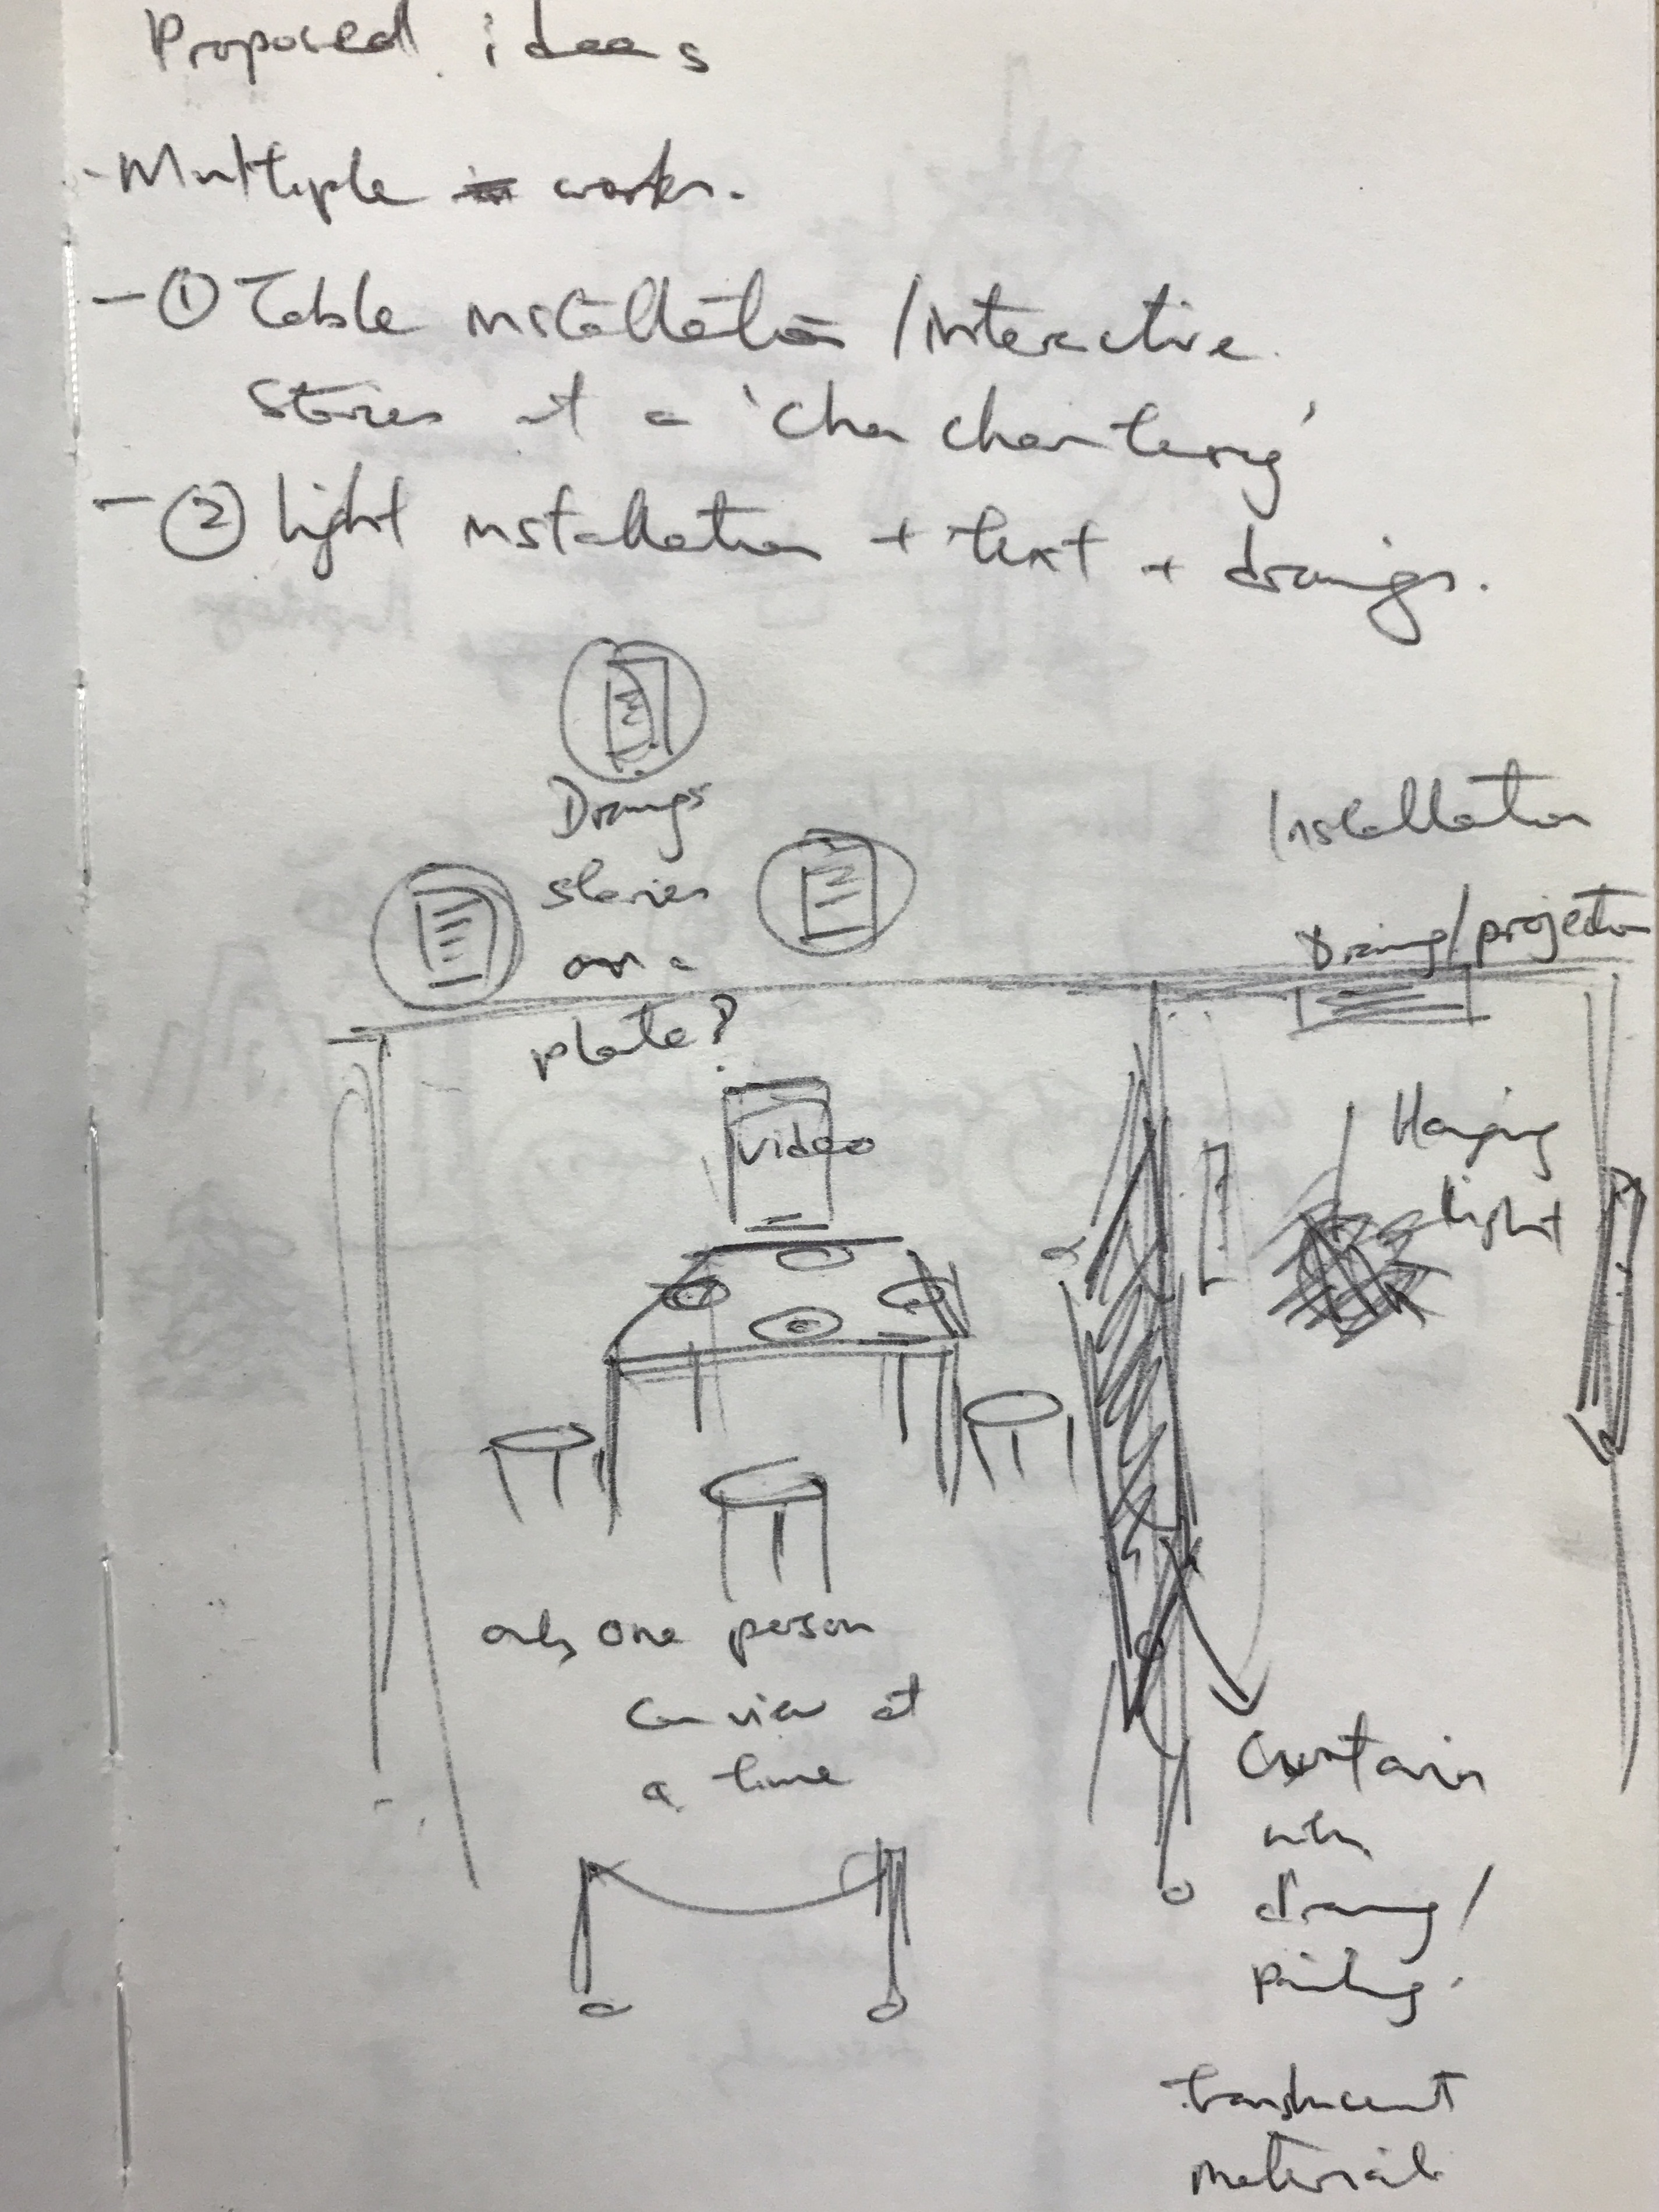 Proposed ideas
- Multiple works.
- ① Table installation / interactive.
Stories at a 'cha chan teng'
- ② light installation + text + drawings.
Drawings
stories
on a
plate?
Installation
Drawing/projection
video
Hanging
light
only one person
can view at
a time
Curtain
with
drawing/
painting.
translucent
material.